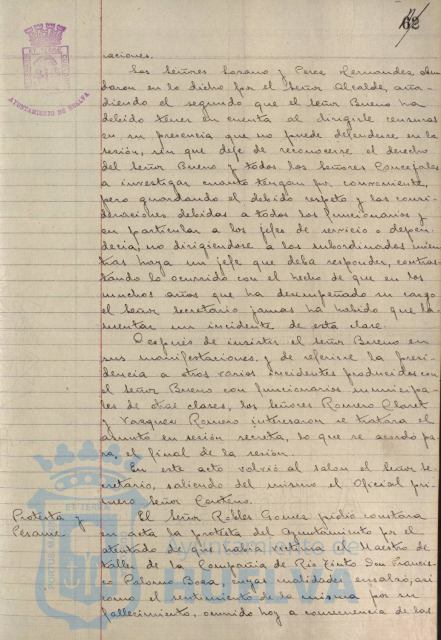 62
AYUNTAMIENTO DE HUELVA
raciones.
Los Señores Lozano y Perez Hernandez abun
daron en lo dicho por el Señor Alcalde, aña
diendo el segundo que el Señor Bueno ha
debido tener en cuenta al dirigirle censuras
en su presencia que no puede defenderse en la
sesión, sin que deje de reconocerse el derecho
del Señor Bueno y todos los Señores Concejales
a investigar cuanto tengan por conveniente,
pero guardando el debido respeto y las consi-
deraciones debidas a todos los funcionarios y
en particular a los jefes de servicio o depen-
dencia, no dirigiendose a los subordinados mien
tras haya un jefe que deba responder, contras-
tando lo ocurrido con el hecho de que en los
muchos años que ha desempeñado su cargo
el Señor Secretario jamas ha habido que la-
mentar un incidente de esta clase.
Después de insistir el Señor Bueno en
sus manifestaciones y de referirse la presi-
dencia a otros varios incidentes producidos con
el Señor Bueno con funcionarios municipa-
les de otras clases, los Señores Romero Claret
y Vazquez Romero interesaron se tratara el
asunto en sesión secreta, lo que se acordó pa
ra el final de la sesión.
En este acto volvió al salon el Señor Se
cretario, saliendo del mismo el Oficial pri-
mero Señor
Protesta y
Pésame.
El Señor Robles Gomez pidió constara
en acta la protesta del Ayuntamiento por el
atentado de que habia victima el Maestro de
taller de la Compañia de Rio Tinto Don Francis-
co Palomo Boza, cuyas cualidades ensalzó, asi
como el sentimiento de la misma por su
fallecimiento, ocurrido hoy a consecuencia de las